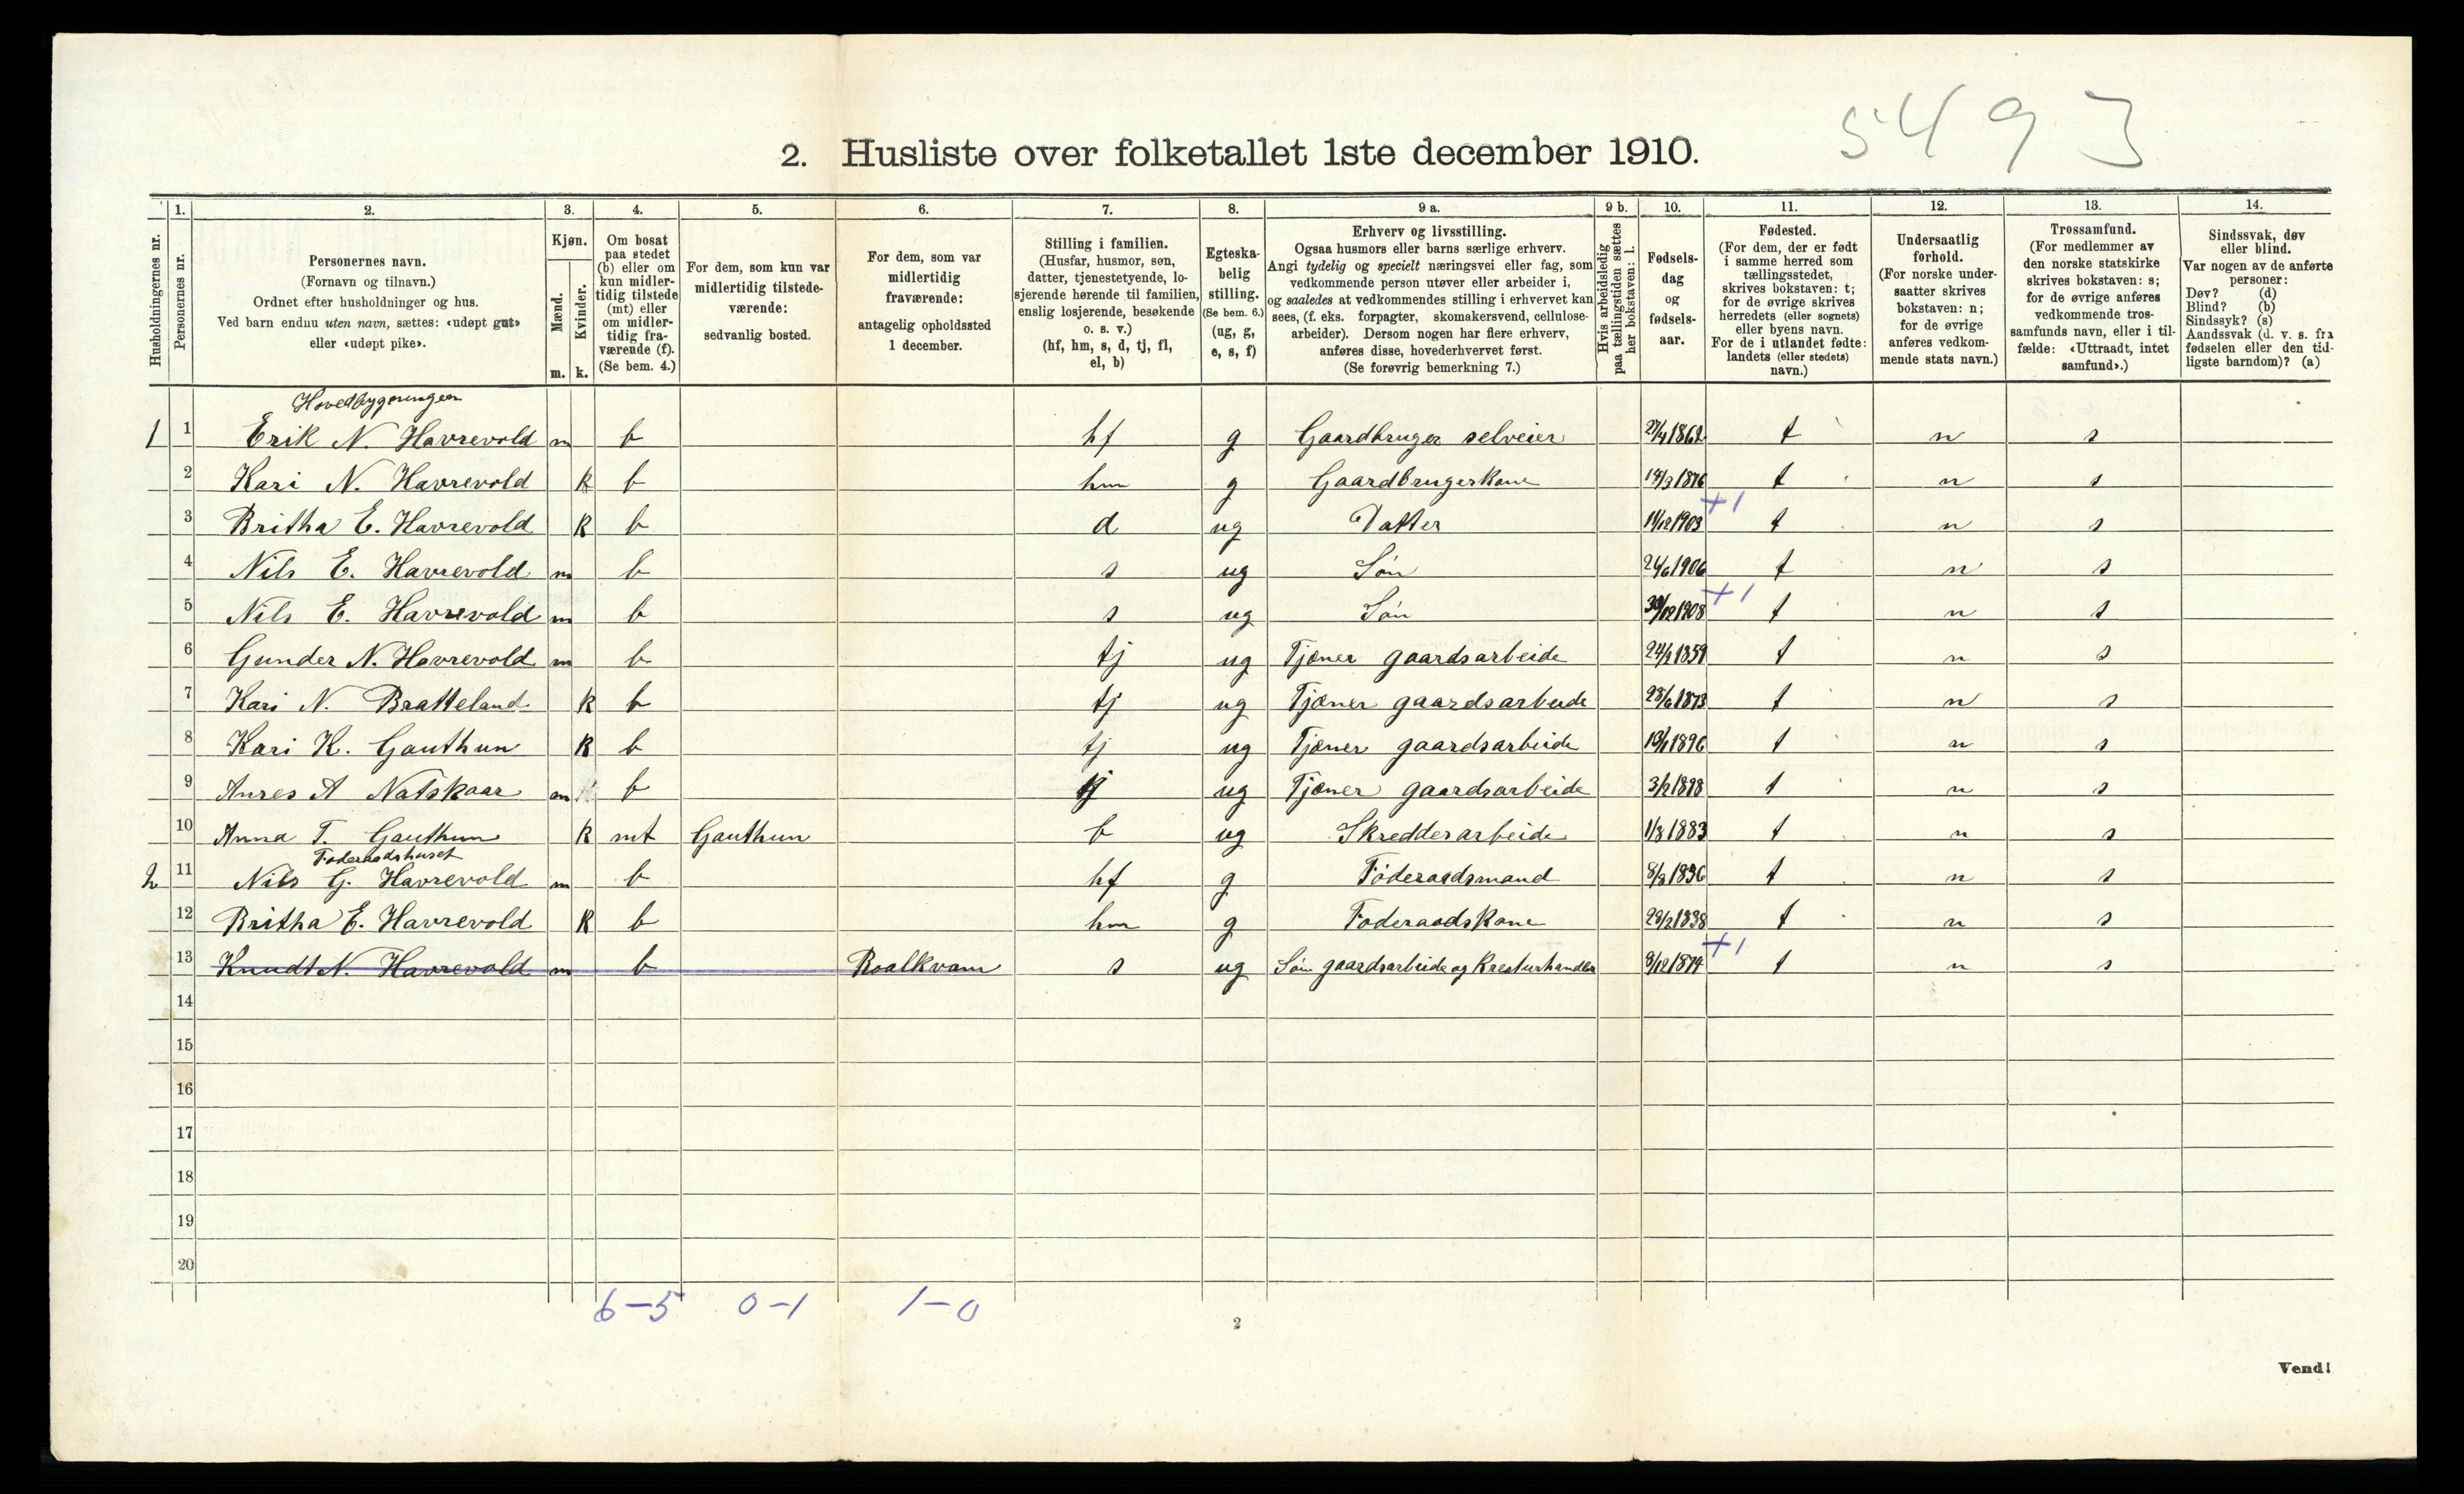 5493
2. Husliste over folketallet 1ste december 1910.
Husholdningernes nr.
1. Personernes nr.
2. Personernes navn.
(Fornavn og tilnavn.)
Ordnet efter husholdninger og hus.
Ved barn endnu uten navn, sættes: «udøpt gut»
eller «udøpt pike».
3. Kjøn.
Mænd. m.
Kvinder. k.
4. Om bosat
paa stedet
(b) eller om
kun midler-
tidig tilstede
(mt) eller
om midler-
tidig fra-
værende (f).
(Se bem. 4.)
5. For dem, som kun var
midlertidig tilstede-
værende:
sedvanlig bosted.
6. For dem, som var
midlertidig
fraværende:
antagelig opholdssted
1 december.
7. Stilling i familien.
(Husfar, husmor, søn,
datter, tjenestetyende, lo-
sjerende hørende til familien,
enslig losjerende, besøkende
o. s. v.)
(hf, hm, s, d, tj, fl,
el, b)
8. Egteska-
belig
stilling.
(Se bem. 6.)
(ug, g,
e, s, f)
9 a. Erhverv og livsstilling.
Ogsaa husmors eller barns særlige erhverv.
Angi tydelig og specielt næringsvei eller fag, som
vedkommende person utøver eller arbeider i,
og saaledes at vedkommendes stilling i erhvervet kan
sees, (f. eks. forpagter, skomakersvend, cellulose-
arbeider). Dersom nogen har flere erhverv,
anføres disse, hovederhvervet først.
(Se forøvrig bemerkning 7.)
9 b. Hvis arbeidsledig
paa tællingstiden sættes
her bokstaven: l.
10. Fødsels-
dag
og
fødsels-
aar.
11. Fødested.
(For dem, der er født
i samme herred som
tællingsstedet,
skrives bokstaven: t;
for de øvrige skrives
herredets (eller sognets)
eller byens navn.
For de i utlandet fødte:
landets (eller stedets)
navn.)
12. Undersaatlig
forhold.
(For norske under-
saatter skrives
bokstaven: n;
for de øvrige
anføres vedkom-
mende stats navn.)
13. Trossamfund.
(For medlemmer av
den norske statskirke
skrives bokstaven: s;
for de øvrige anføres
vedkommende tros-
samfunds navn, eller i til-
fælde: «Uttraadt, intet
samfund».)
14. Sindssvak, døv
eller blind.
Var nogen av de anførte
personer:
Døv? (d)
Blind? (b)
Sindssyk? (s)
Aandssvak (d. v. s. fra
fødselen eller den tid-
ligste barndom)? (a)
Hovedbygningen
1 1 Erik N. Havrevold m b hf g Gaardbruger selveier 27/4 1862 t n s
2 Kari N. Havrevold k b hm g Gaardbrugerkone 14/3 1876 t n s
3 Britha E. Havrevold k b d ug Datter 14/12 1903 +1 t n s
4 Nils E. Havrevold m b s ug Søn 24/6 1906 t n s
5 Nils E. Havrevold m b s ug Søn 30/12 1908 +1 t n s
6 Gunder N. Havrevold m b tj ug Tjæner gaardsarbeide 24/2 1859 t n s
7 Kari N. Bratteland k b tj ug Tjæner gaardsarbeide 28/6 1873 t n s
8 Kari K. Gauthun k b tj ug Tjæner gaardsarbeide 13/1 1896 t n s
9 Anres A Natskaar m b tj ug Tjæner gaardsarbeide 3/2 1898 t n s
10 Anna T. Gauthun k mt Gauthun b ug Skredderarbeide 1/8 1883 t n s
Føderaadshuset
2 11 Nils G. Havrevold m b hf g Føderaadsmand 8/3 1836 t n s
12 Britha E. Havrevold k b hm g Føderaadskone 29/2 1838 t n s
13 Knudt N. Havrevold m b Roalkvam s ug Søn gaardsarbeide og Kreaturhandler 9/12 1874 +1 t n s
14
15
16
17
18
19
20
6-5 0-1 1-0
2
Vend!